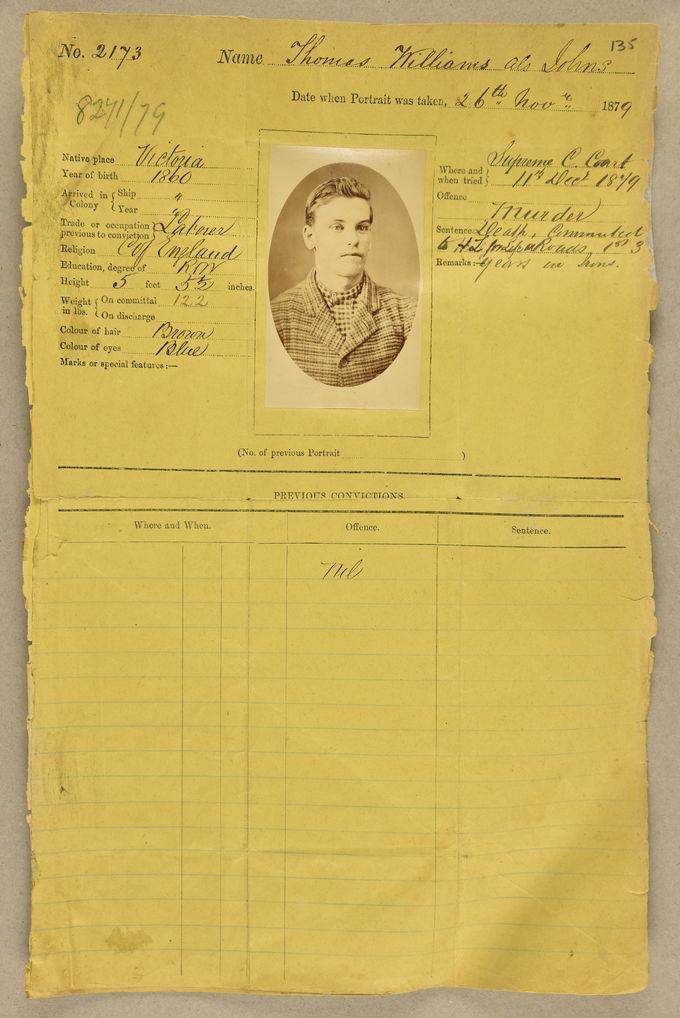 135
No. 2173 Name Thomas Williams als Johns
Date when Portrait was taken, 26th Novr 1879
8271/79
Native place Victoria
Year of birth 1860
Arrived in Colony { Ship "
Year "
Trade or occupation previous to conviction } Laborer
Religion C of England
Education, degree of R W
Height 5 feet 5½ inches.
Weight in lbs. { On committal 122
On discharge
Colour of hair Brown
Colour of eyes Blue
Marks or special features:—
Where and when tried { Supreme C. Court
11th Decr 1879
Offence Murder
Sentence Death, Commuted
to H L Roads 1st 3
Remarks:— years in Irons.
(No. of previous Portrait )
PREVIOUS CONVICTIONS
Where and When. Offence. Sentence.
Nil